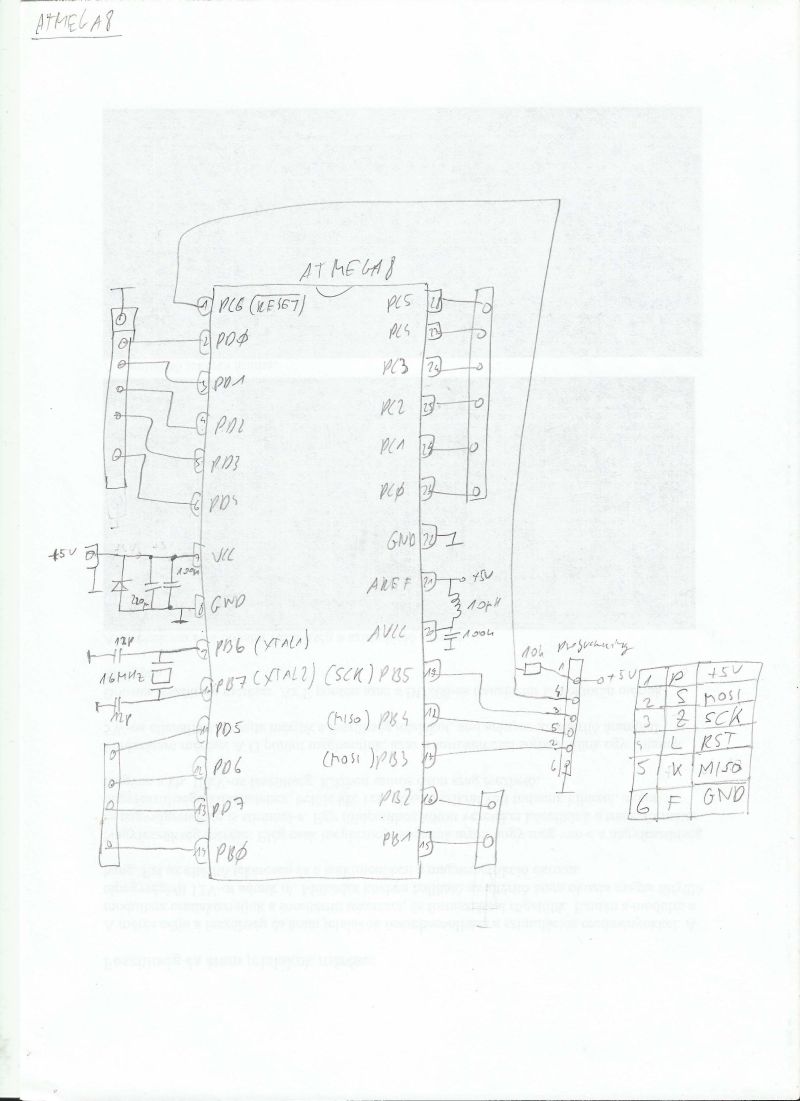 ATMEGA8
ATMEGA8
1 PC6 (RESET)
2 PDØ
3 PD1
4 PD2
5 PD3
6 PD4
+5V
7 VCC
100n
220µ
8 GND
12P
9 PB6 (XTAL1)
16MHZ
10 PB7 (XTAL2)
12P
11 PD5
12 PD6
13 PD7
14 PBØ
PC5 28
PC4 27
PC3 26
PC2 25
PC1 24
PCØ 23
GND 22
AREF 21 +5V
10µH
AVCC 20 100n
(SCK) PB5 19
(MISO) PB4 18
(MOSI) PB3 17
PB2 16
PB1 15
10k Programming
1 +5V
4
3
5
2
6
1 P +5V
2 S MOSI
3 Z SCK
4 L RST
5 K MISO
6 F GND